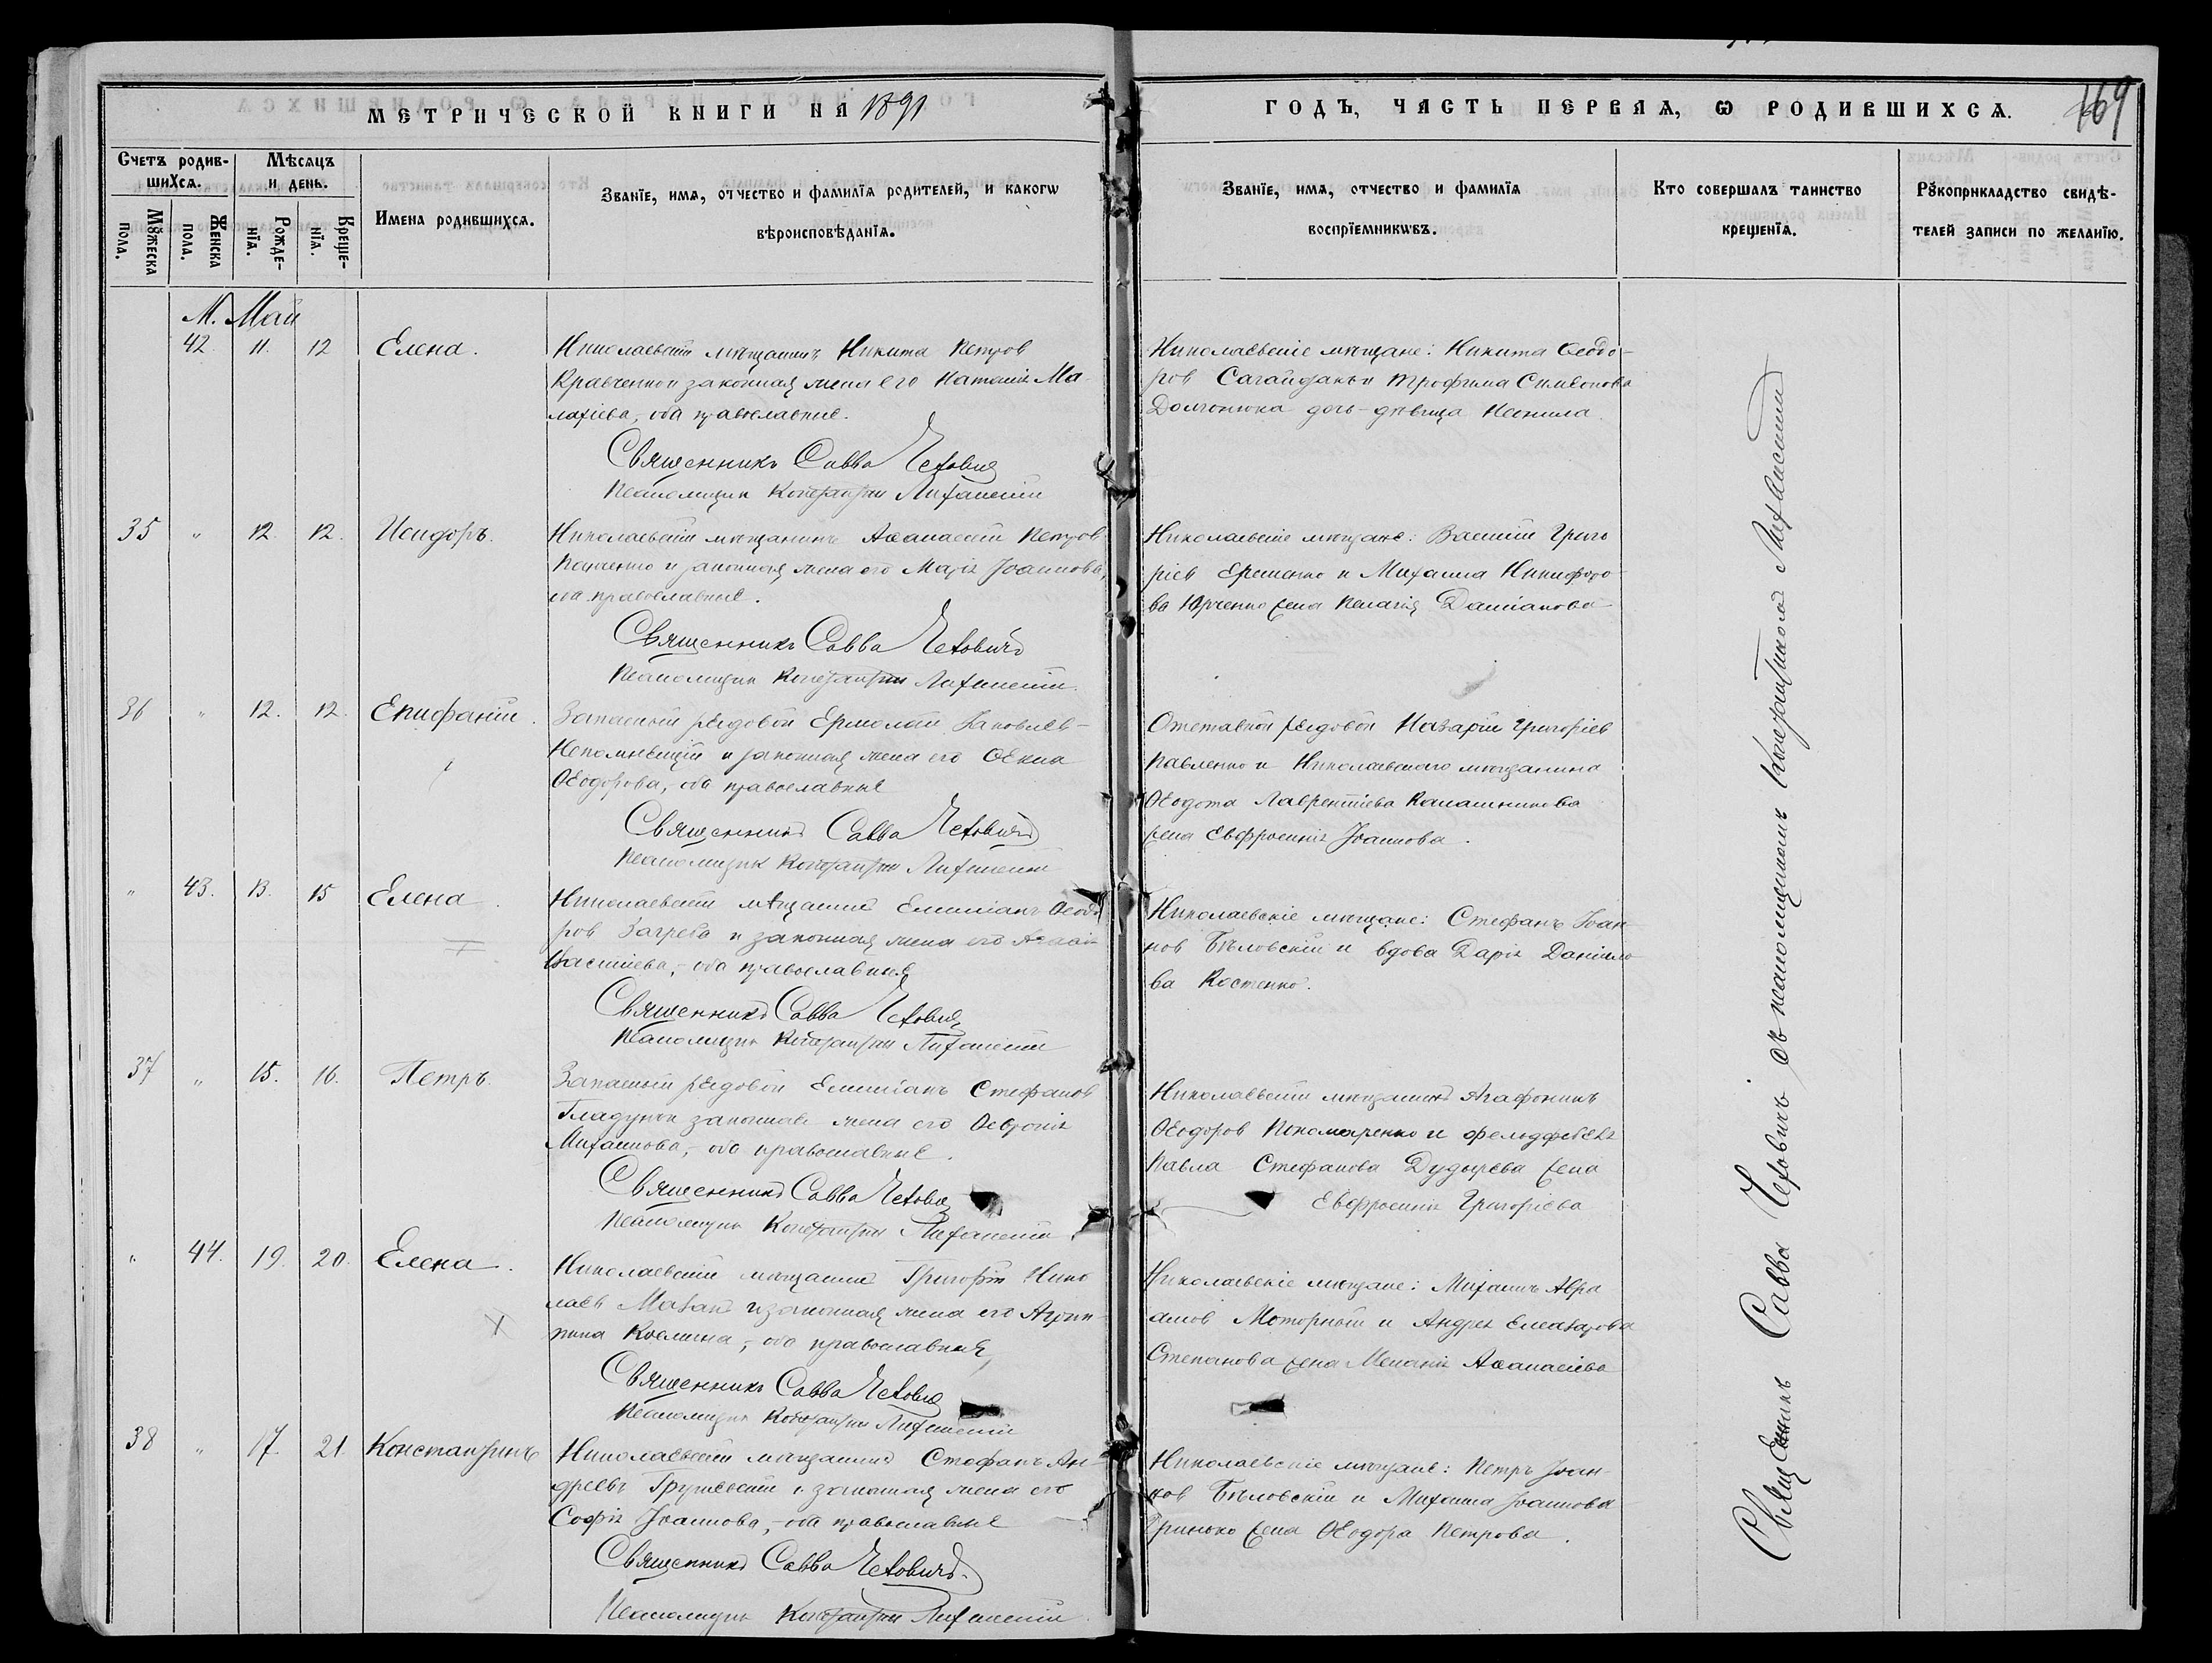 МЕТРИЧЕСКОЙ КНИГИ НА 1891
ГОДЪ, ЧАСТЬ ПЕРВАЯ, Ѡ РОДИВШИХСЯ.
169
Счетъ родив-
шихся.
Мѣсяцъ
и день.
Мꙋжеска
пола.
Женска
пола.
Рожде-
нїя.
Креще-
нїя.
Имена родившихся.
Званїе, имя, отчество и фамилїя родителей, и какогѡ
вѣроисповѣданїя.
Званїе, имя, отчество и фамилїя
воспрїемникѡвъ.
Кто совершалъ таинство
крещенїя.
Рꙋкоприкладство свидѣ-
телей записи по желанїю.
М. Май
42. 11. 12 Елена.
Николаевскій мѣщанинъ Никита Петров
Кравченко и законная жена его Наталія Ма-
лахіева, оба православные.
Священникъ Савва Чехович
Псаломщик Константин
Николаевскіе мѣщане: Никита Ѳеодо-
ров Сагайдакъ и Трофима Симеонова
дочь-дѣвица
35 " 12. 12. Исидоръ.
Николаевскій мѣщанинъ Аѳанасій Петров
и законная жена его Марія Іоаннова,
оба православные.
Священникъ Савва Чеховичъ
Псаломщик Константин
Николаевскіе мѣщане: Василій Григо
ріев Ерешенко и Михаила Никифоро-
ва Юрченко жена Пелагія Даміанова
36 " 12. 12. Епифаній.
Запасный рядовой Ермолай Іаковлев
и законная жена его Ѳекла
Ѳеодорова, оба православные
Священникъ Савва Чеховичъ
Псаломщик Константин
Отставной рядовой Назарій Григоріев
Павленко и Николаевского мѣщанина
Ѳеодота Лаврентіева Калашникова
жена Евфросинія Іоаннова.
" 43. 13. 15 Елена.
Николаевскій мѣщанинъ Емиліанъ Ѳеодо
ров Загреба и законная жена его
Василіева, оба православные
Священникъ Савва Чехович
Псаломщик Константин
Николаевскіе мѣщане: Стефанъ Іоан-
нов Бѣловскій и вдова Дарія Даніило-
ва Костенко.
37 " 15. 16. Петръ.
Запасный рядовой Емиліанъ Стефанов
законная жена его Ѳевронія
Михайлова, оба православные.
Священникъ Савва Чехович
Псаломщик Константин
Николаевскій мѣщанинъ Агафоникъ
Ѳеодоров Пономаренко и фельдфебеля
Павла Стефанова Дудырева жена
Евфросинія Григоріева
" 44. 19. 20. Елена.
Николаевскій мѣщанинъ Григорій Нико
лаев Мазан и законная жена его Агрип-
пина Космина, оба православные
Священникъ Савва Чехович
Псаломщик Константин
Николаевскіе мѣщане: Михаилъ Авра
амов Моторный и Андрея Елеазарова
Степанова жена Меланія Аѳанасіева
38 " 17. 21 Константинъ
Николаевскій мѣщанинъ Стефанъ Ан-
дреевъ Грушевскій и законная жена его
Софія Іоаннова, оба православные
Священникъ Савва Чеховичъ
Псаломщик Константин
Николаевскіе мѣщане: Петръ Іоан-
нов Бѣловскій и Михаила Іоаннова
Гринько жена Ѳеодора Петрова.
Священникъ Савва Чеховичъ съ псаломщикомъ Константиномъ